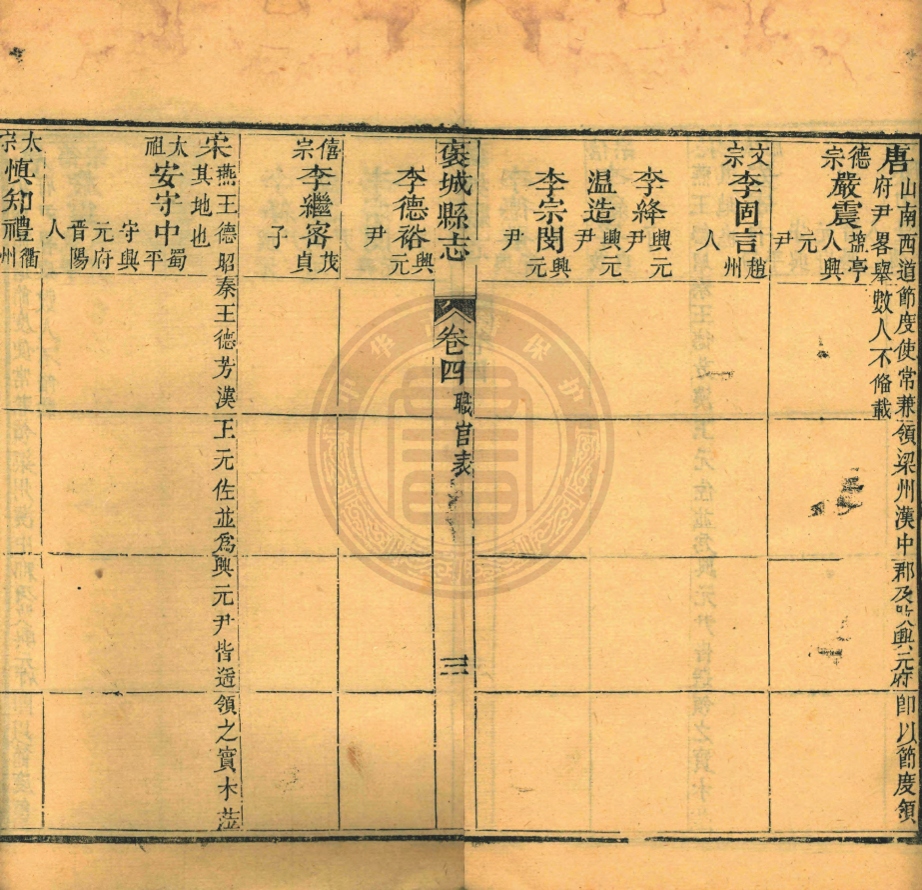 唐山南西道節度使常兼領梁州漢中郡及改興元府即以節度領
府尹畧舉數人不備載
德宗
嚴震
元興尹人
文宗
李固言
趙州人
李絳
興元尹
温造
興元尹
李宗閔
興元尹
褒城縣志
卷四
職官表
三
李德裕
興元尹
僖宗
李繼密
茂貞子
宋燕王德昭秦王德芳漢王元佐並爲興元尹皆遥領之實未蒞
其地也
太祖
安守中
蜀平守興元府晋陽人
太宗
慎知禮
衢州